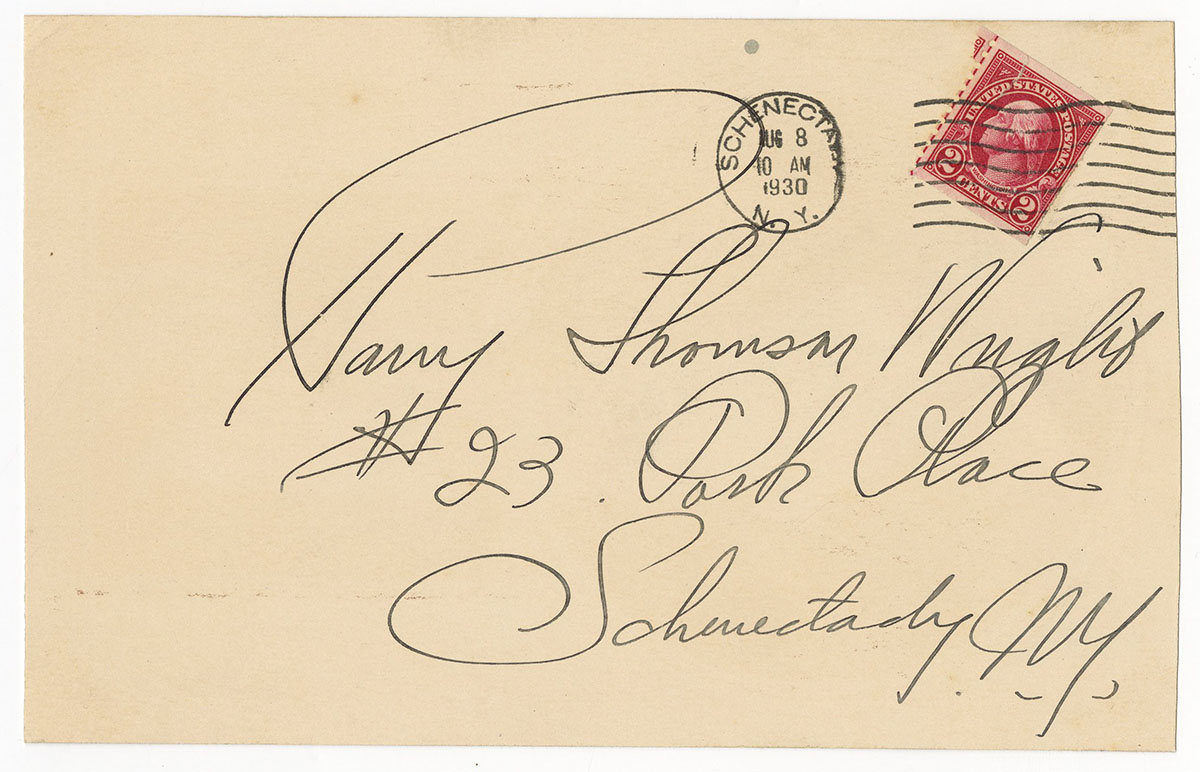 SCHENECTADY
AUG 8
10 AM
1930
N. Y.
UNITED STATES POSTAGE
2 CENTS 2
Harry Thomson Wright
# 23. Park Place
Schenectady N.Y.